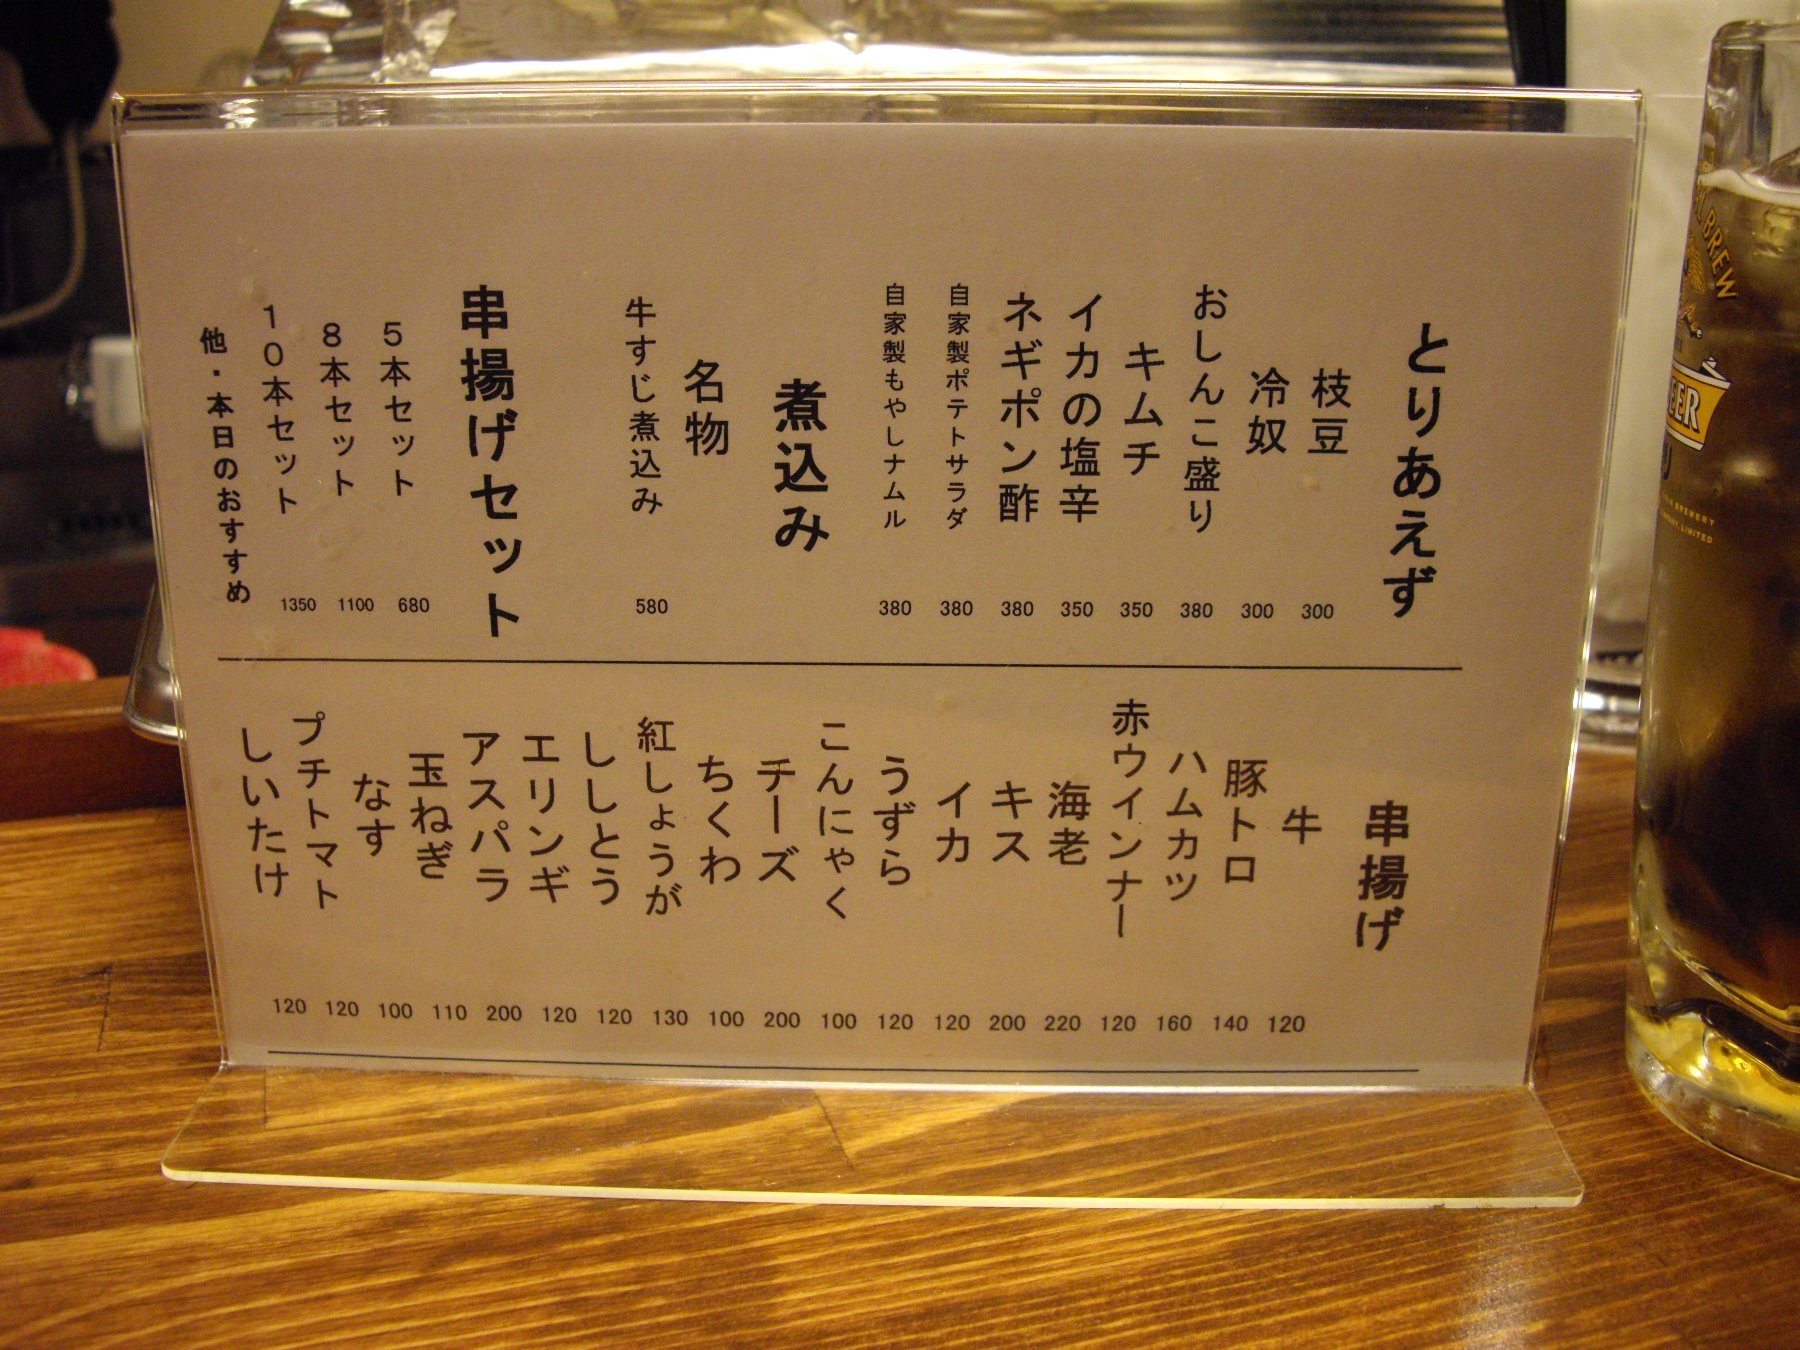 とりあえず
枝豆 300
冷奴 300
おしんこ盛り 380
キムチ 350
イカの塩辛 350
ネギポン酢 380
自家製ポテトサラダ 380
自家製もやしナムル 380
煮込み
名物
牛すじ煮込み 580
串揚げセット
5本セット 680
8本セット 1100
10本セット 1350
他・本日のおすすめ
串揚げ
牛 120
豚トロ 140
ハムカツ 160
赤ウインナー 120
海老 220
キス 200
イカ 120
うずら 120
こんにゃく 100
チーズ 200
ちくわ 100
紅しょうが 130
ししとう 120
エリンギ 120
アスパラ 200
玉ねぎ 110
なす 100
プチトマト 120
しいたけ 120
BREW
BEER
BREWERY
COMPANY, LIMITED